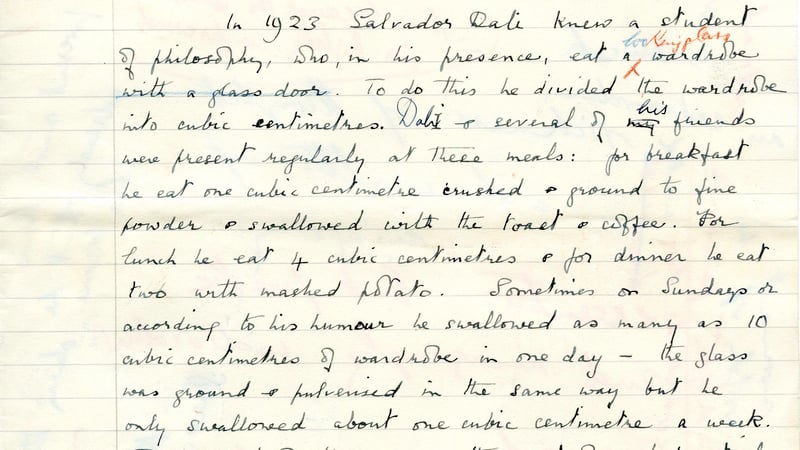 In 1923 Salvador Dali knew a student
of philosophy, who, in his presence, eat a looking glass wardrobe
with a glass door. To do this he divided the wardrobe
into cubic centimetres. Dali & several of my his friends
were present regularly at these meals: for breakfast
he eat one cubic centimetre crushed & ground to fine
powder & swallowed with the toast & coffee. For
lunch he eat 4 cubic centimetres & for dinner he eat
two with mashed potato. Sometimes on Sundays or
according to his humour he swallowed as many as 10
cubic centimetres of wardrobe in one day – the glass
was ground & pulverised in the same way but he
only swallowed about one cubic centimetre a week.